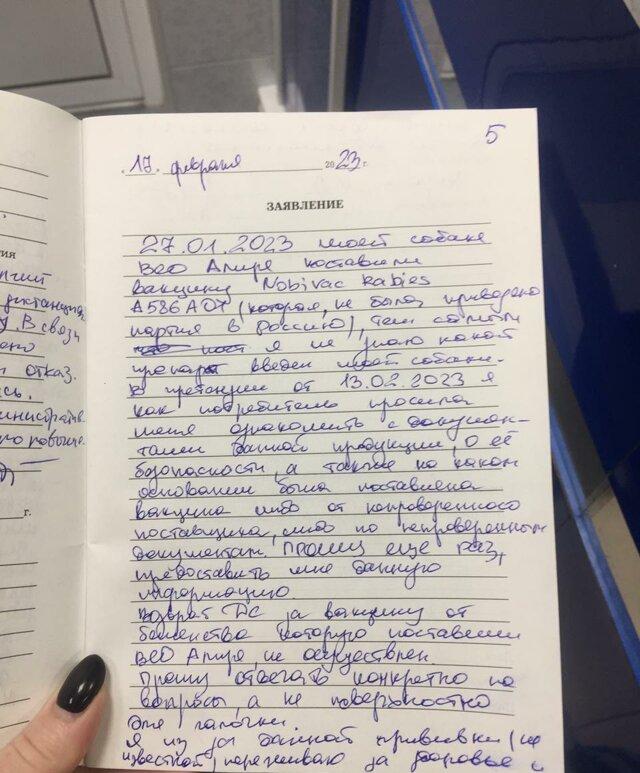 5
17. февраля 2023 г.
ЗАЯВЛЕНИЕ
27.01.2023 моей собаке
ВЕО поставили
вакцину Nobivac Rabies
A586A01 (которая, не была приведена
партия в Россию), тем самым
я не знаю какой
препарат введен моей собаке.
В претензии от 13.02.2023 я
как потребитель просила
меня ознакомить с докумен-
тами данной продукции, о её
безопасности, а также на каком
основании была поставлена
вакцина либо от непроверенного
поставщика, либо по непроверенным
документам. Прошу еще раз,
предоставить мне данную
информацию.
Возврат ДС за вакцину от
бешенства которую поставили
ВЕО не осуществлен
Прошу отвечать конкретно на
вопросы, а не поверхностно
для галочки.
Я из за данной прививки (не
известной) переживаю за здоровье
ия
дистанция
. В связи
отказ.
сь.
министратив
г.